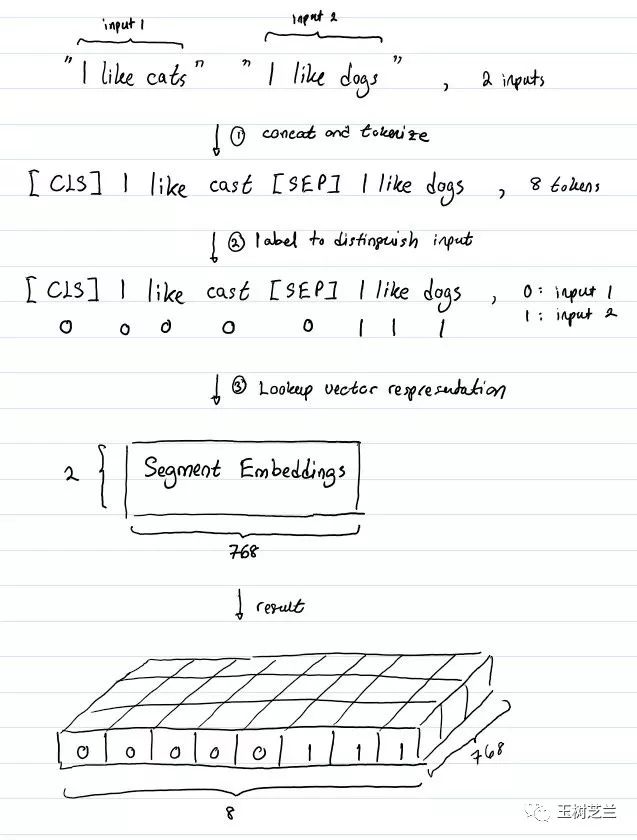 input 1 input 2
"I like cats" "I like dogs" , 2 inputs
① concat and tokenize
[CLS] I like cast [SEP] I like dogs , 8 tokens
② label to distinguish input
[CLS] I like cast [SEP] I like dogs , 0: input 1
0 0 0 0 0 1 1 1 1: input 2
③ Lookup vector respresentation
2 { Segment Embeddings
768
result
0 0 0 0 0 1 1 1
768
8
玉树芝兰